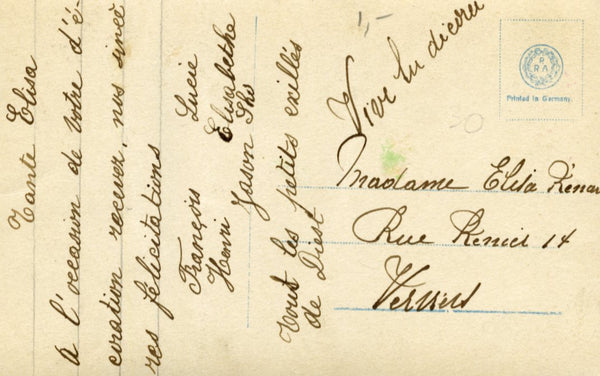 Tante Elisa
à l'occasion de votre d'é-
coration recever, nos sincè
res félicitations
François Lucie
Henri Elisabethe
Jason
Tout les petits exillés
de Diest
Vive la
1,-
50
R
RA
Printed in Germany.
Madame Elisa Rénar
Rue Renier 14